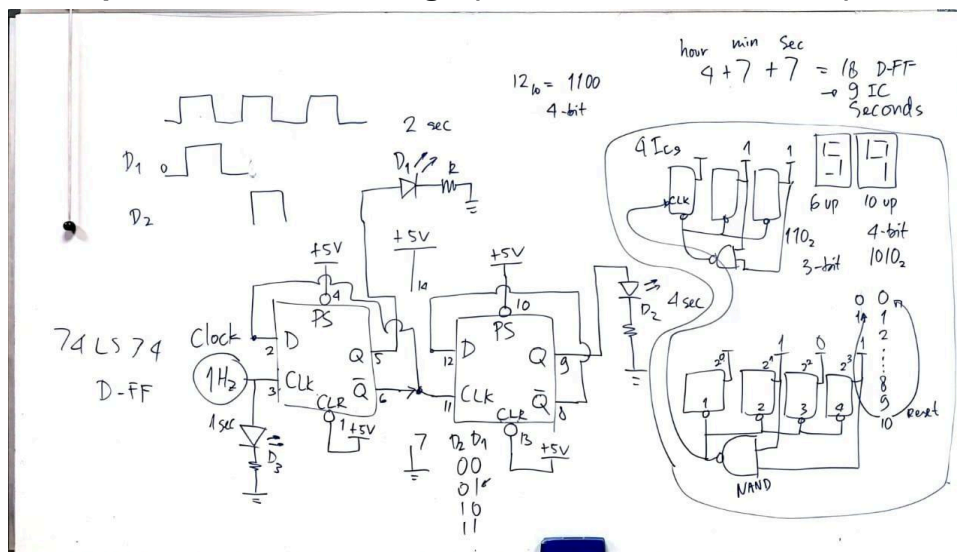 hour min Sec
4 + 7 + 7 = 18 D-FF
→ 9 IC
Seconds
12₁₀ = 1100
4-bit
2 sec
D₁ 0
D₂
D₁ R
+5V
14
+5V
4
PS
D
2
Q 5
CLK
3
Q̅ 6
CLR
1
+5V
74LS74
D-FF
Clock
1Hz
1sec
D₃
7
+5V
10
PS
D
12
Q 9
CLK
11
Q̅ 8
CLR
13
+5V
D₂
4 sec
D₂ D₁
00
01
10
11
9 ICs
1 1
CLK
6 up 10 up
110₂
3-bit
4-bit
1010₂
0 0
1
2
8
9
10
Reset
1 0 1
2⁰ 2¹ 2² 2³
1 2 3 4
NAND